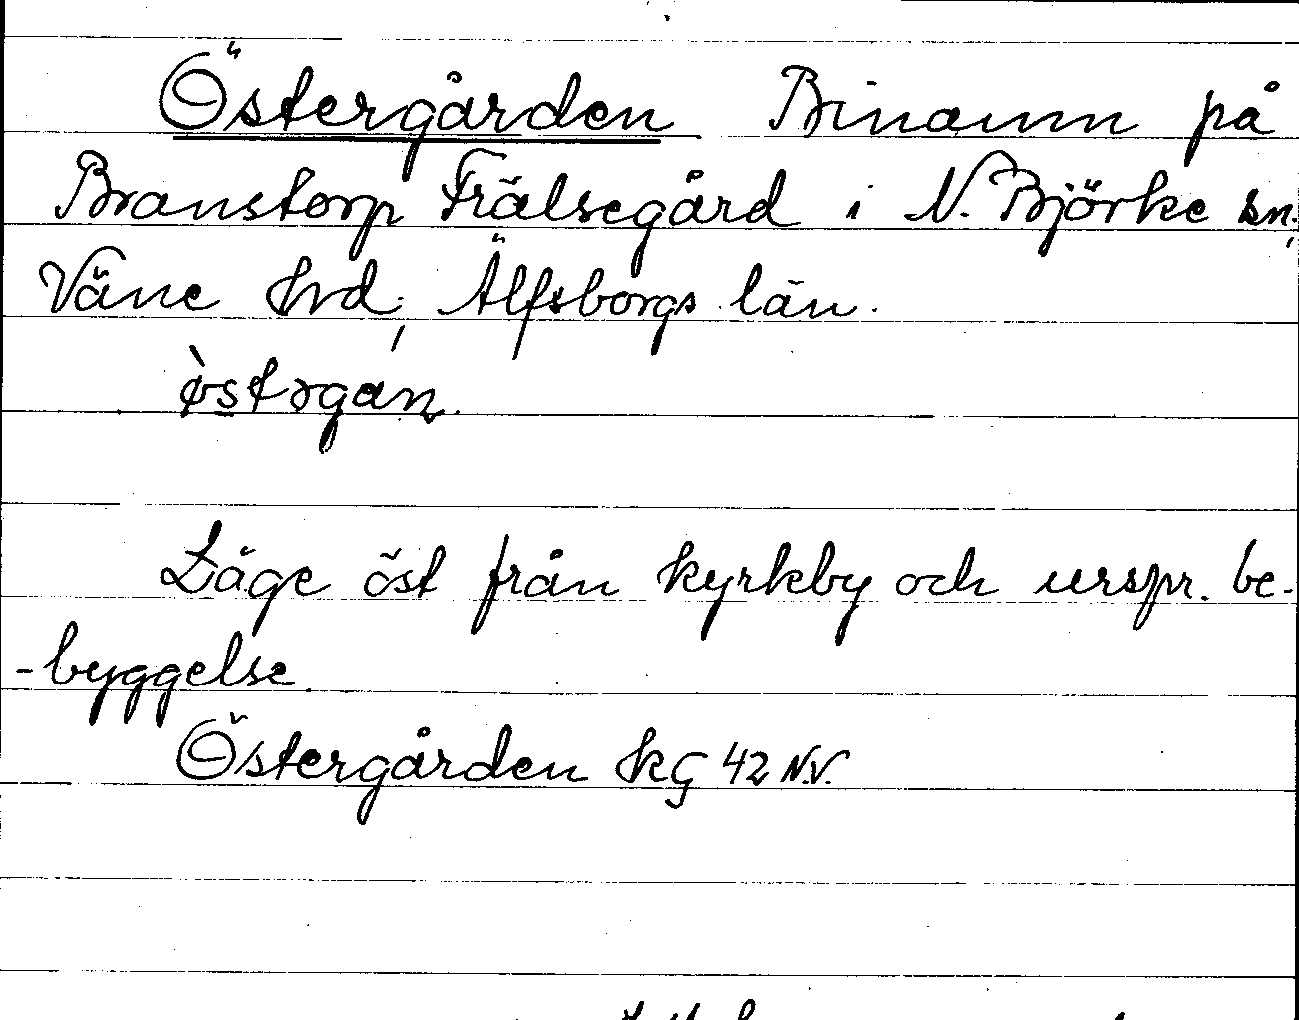 Östergården Binamn på
Branstorp Frälsegård i N. Björke sn.,
Väne hrd, Älfsborgs län.
Läge öst från kyrkby och urspr. be-
-byggelse
Östergården kG 42 N.V.